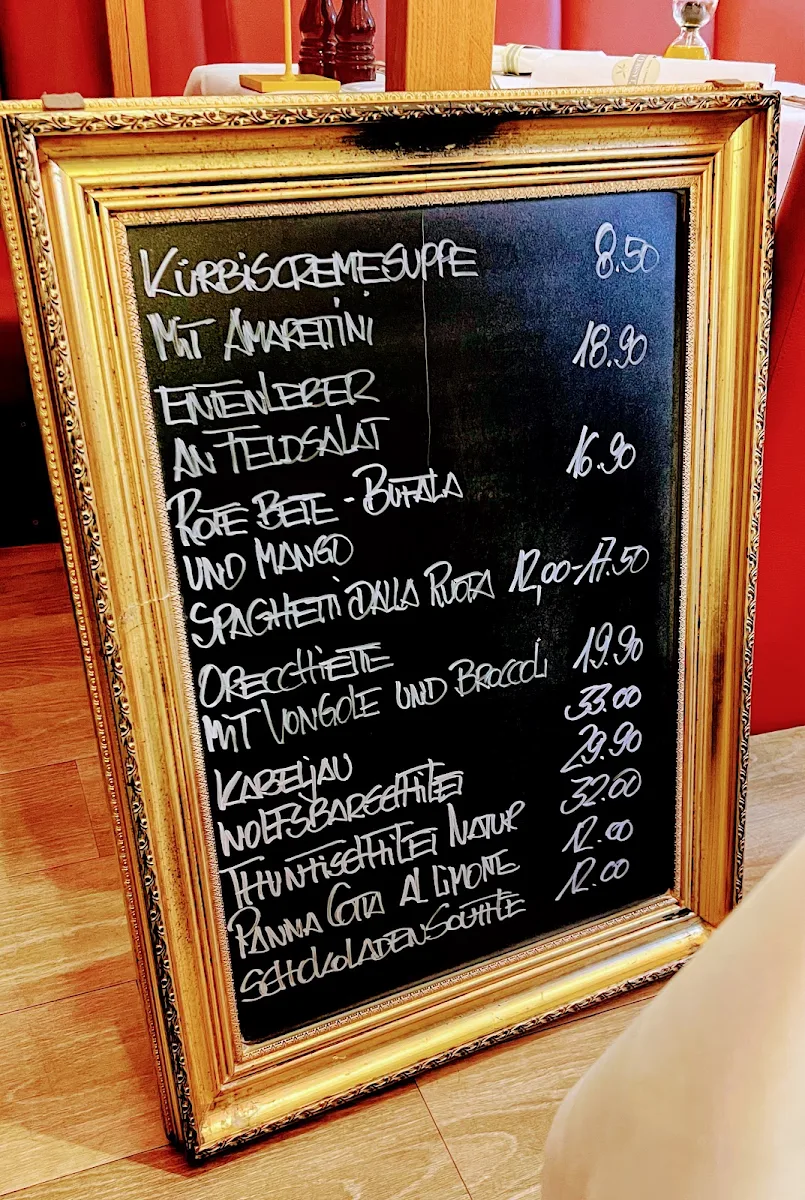 KÜRBISCREMESUPPE 8.50
MIT AMARETTINI
ENTENLEBER 18.90
AN FELDSALAT
ROTE BETE - BUFALA 16.90
UND MANGO
SPAGHETTI DALLA RUOTA 12,00-17.50
ORECCHIETTE 19.90
MIT VONGOLE UND BROCCOLI
KABELJAU 33.00
WOLFSBARSCHFILET 29.90
THUNFISCHFILET NATUR 32.00
PANNA COTTA AL LIMONE 12.00
SCHOKOLADENSOUFFLE 12.00